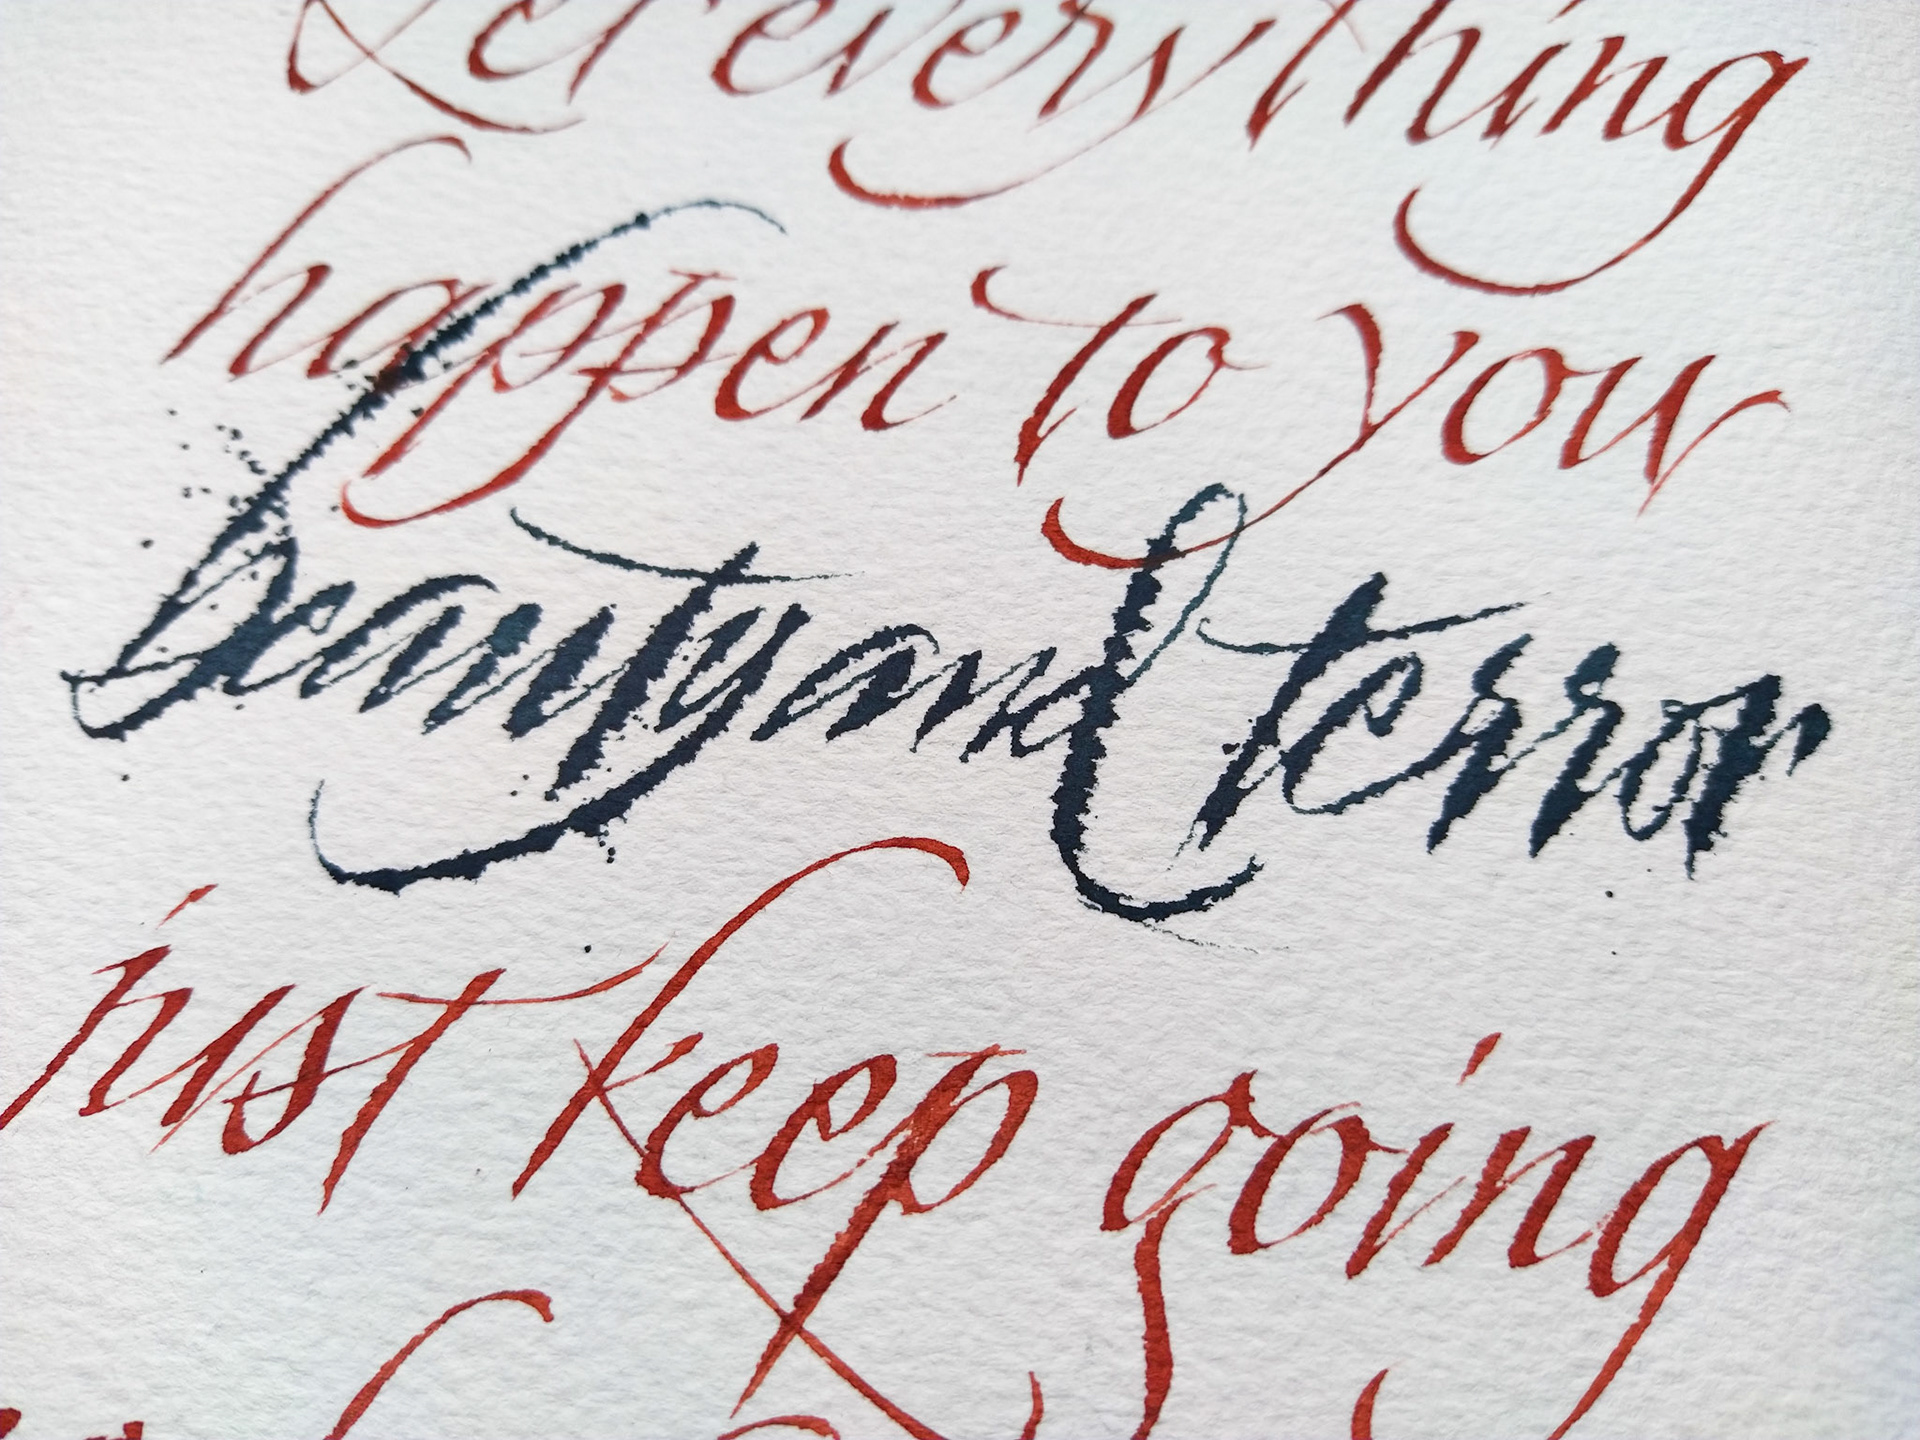 Let everything
happen to you
beauty and terror
just keep going